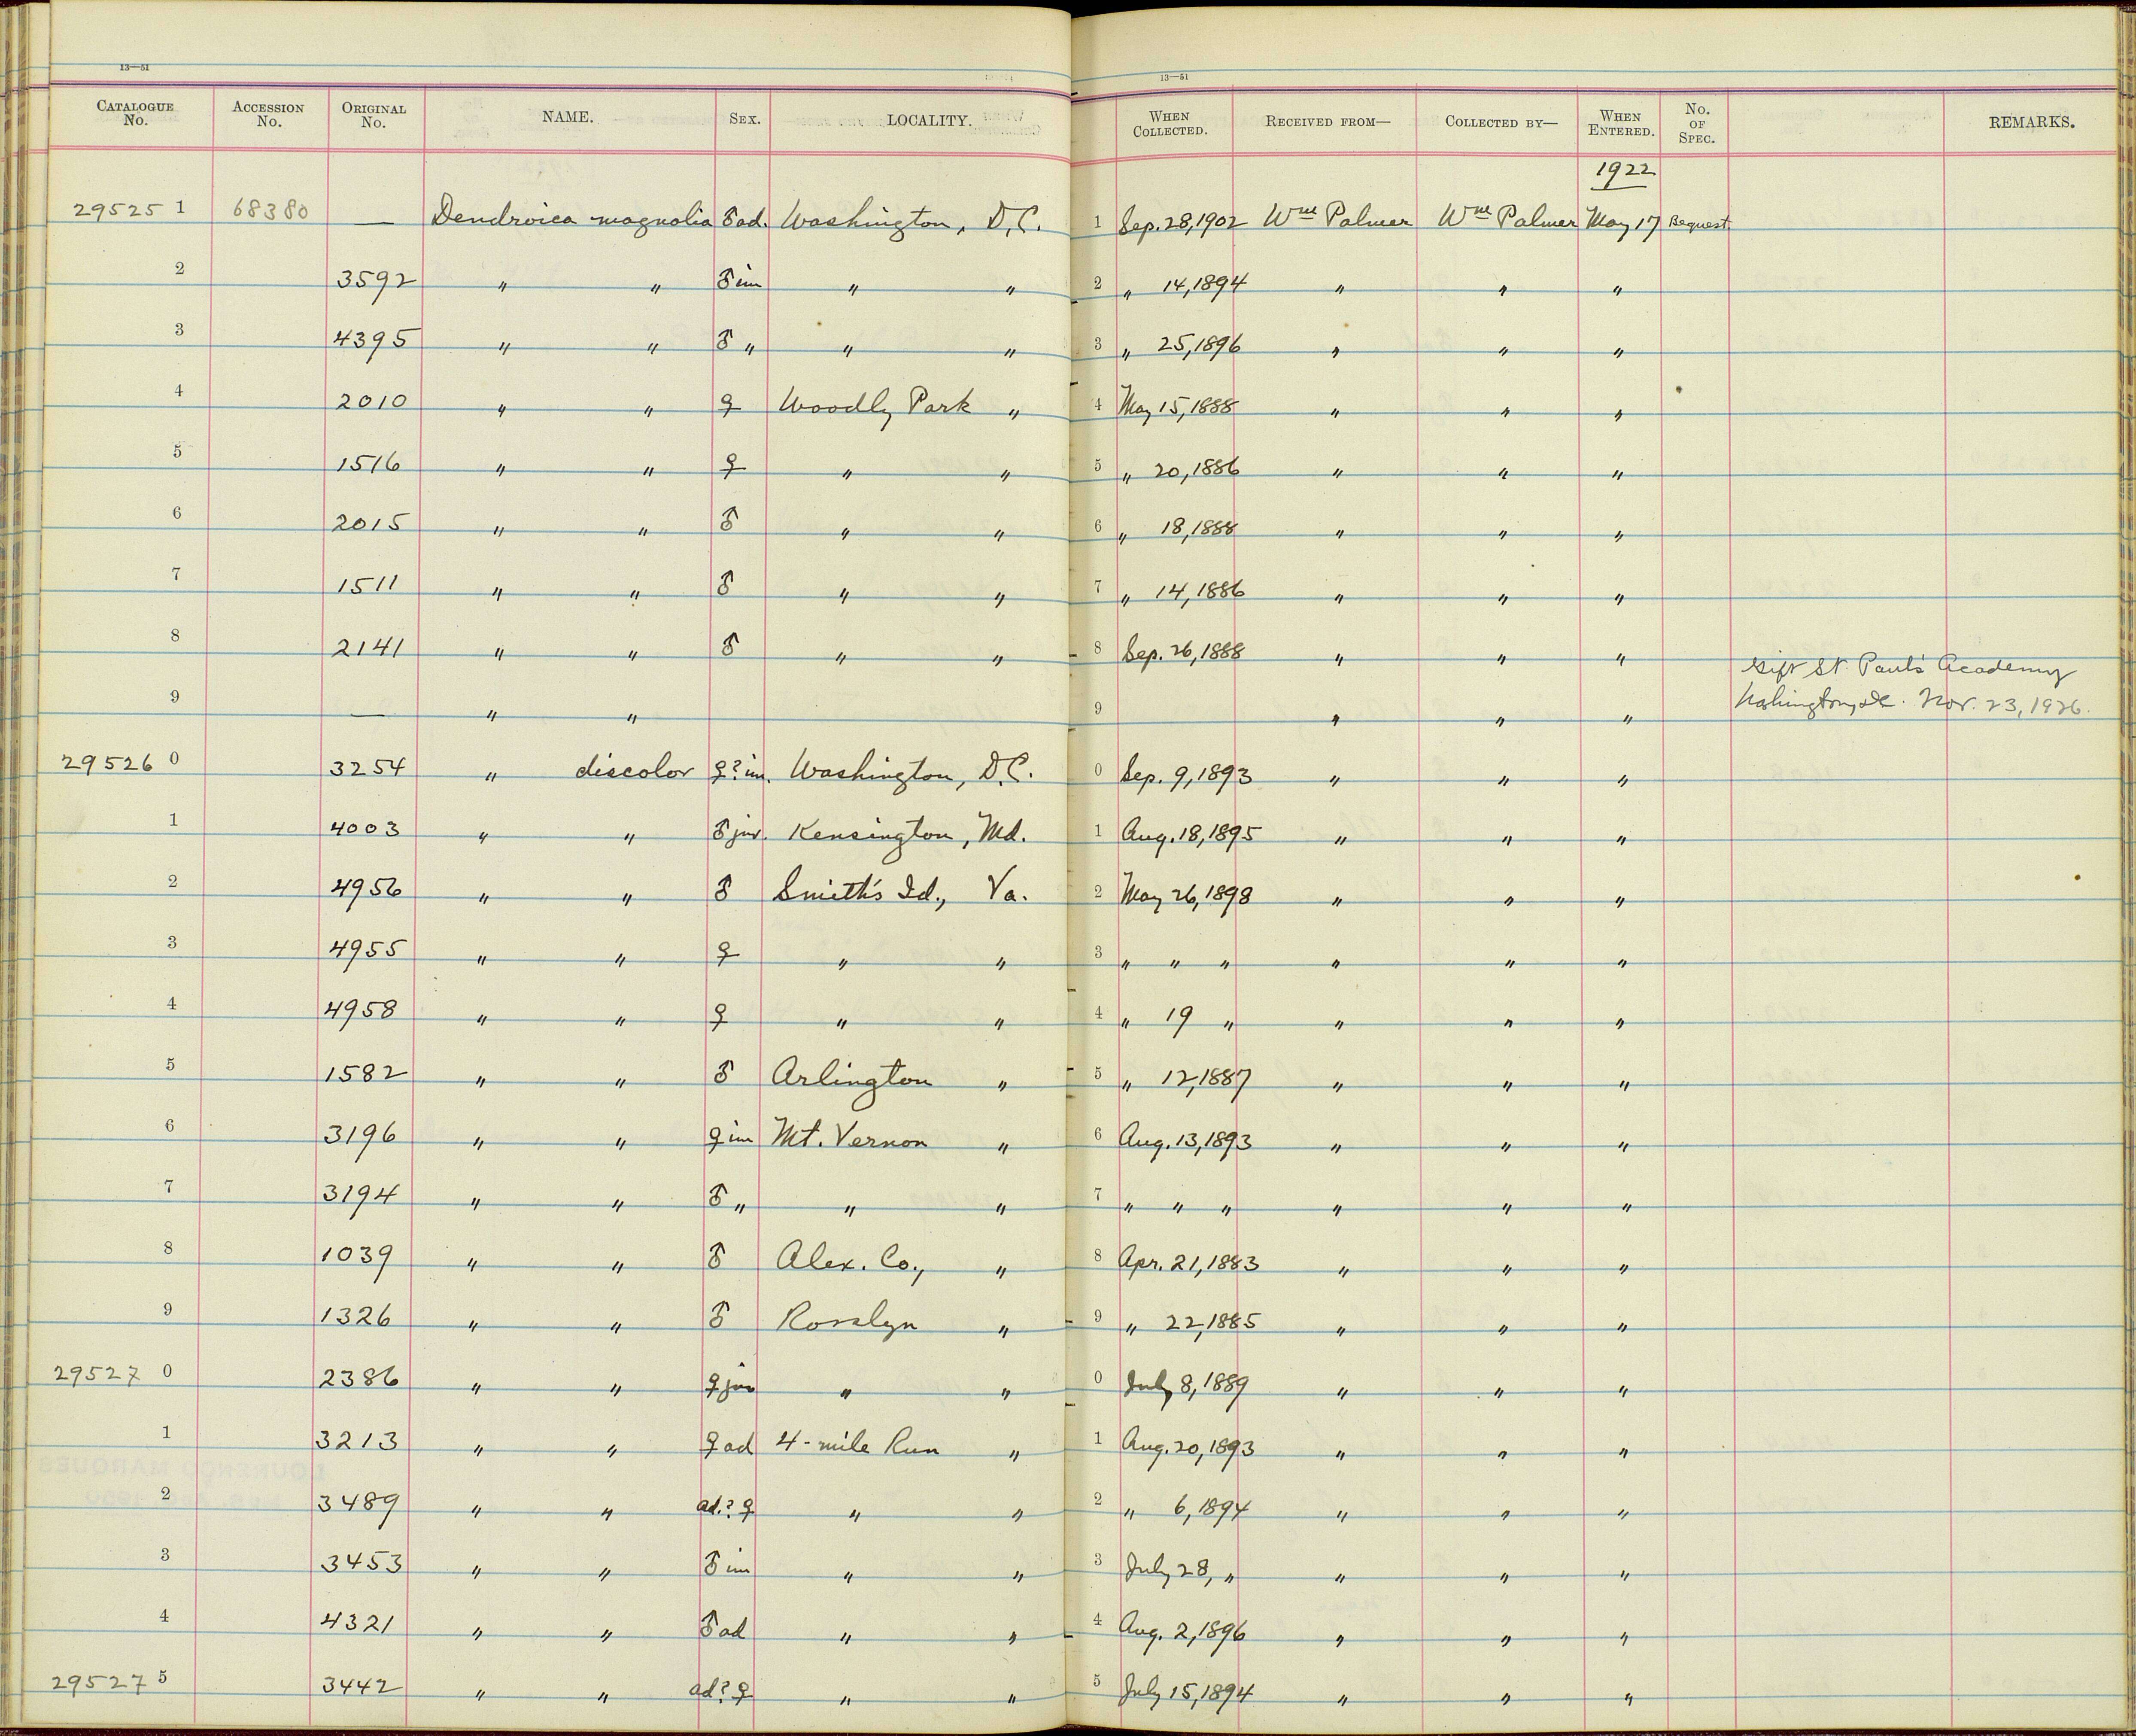 13—51
13—51
CATALOGUE No. ACCESSION No. ORIGINAL No. NAME. SEX. LOCALITY. WHEN COLLECTED. RECEIVED FROM— COLLECTED BY— WHEN ENTERED. No. OF SPEC. REMARKS.
1922
29525 1 68380 — Dendroica magnolia ♂ ad. Washington, D.C. 1 Sep. 28, 1902 Wm Palmer Wm Palmer May 17 Bequest
2 3592 " " ♂ im " " 2 " 14, 1894 " " "
3 4395 " " ♂ " " " 3 " 25, 1896 " " "
4 2010 " " ♀ Woodly Park " 4 May 15, 1888 " " "
5 1516 " " ♀ " " 5 " 20, 1886 " " "
6 2015 " " ♂ " " 6 " 18, 1888 " " "
7 1511 " " ♂ " " 7 " 14, 1886 " " "
8 2141 " " ♂ " " 8 Sep. 26, 1888 " " "
Gift St. Paul's Academy
9 — " " 9 " " " Washington, DC. Nov. 23, 1926.
29526 0 3254 " discolor ♀? im. Washington, D.C. 0 Sep. 9, 1893 " " "
1 4003 " " ♂ juv. Kensington, Md. 1 Aug. 18, 1895 " " "
2 4956 " " ♂ Smith's Id., Va. 2 May 26, 1898 " " "
3 4955 " " ♀ " " 3 " " " " " "
4 4958 " " ♀ " " 4 " 19 " " " "
5 1582 " " ♂ Arlington " 5 " 12, 1887 " " "
6 3196 " " ♀ im Mt. Vernon " 6 Aug. 13, 1893 " " "
7 3194 " " ♂ " " " 7 " " " " " "
8 1039 " " ♂ Alex. Co., " 8 Apr. 21, 1883 " " "
9 1326 " " ♂ Rosslyn " 9 " 22, 1885 " " "
29527 0 2386 " " ♀ juv " " 0 July 8, 1889 " " "
1 3213 " " ♀ ad 4-mile Run " 1 Aug. 20, 1893 " " "
2 3489 " " ad.? ♀ " " 2 " 6, 1894 " " "
3 3453 " " ♂ im " " 3 July 28, " " " "
4 4321 " " ♂ ad " " 4 Aug. 2, 1896 " " "
29527 5 3442 " " ad? ♀ " " 5 July 15, 1894 " " "